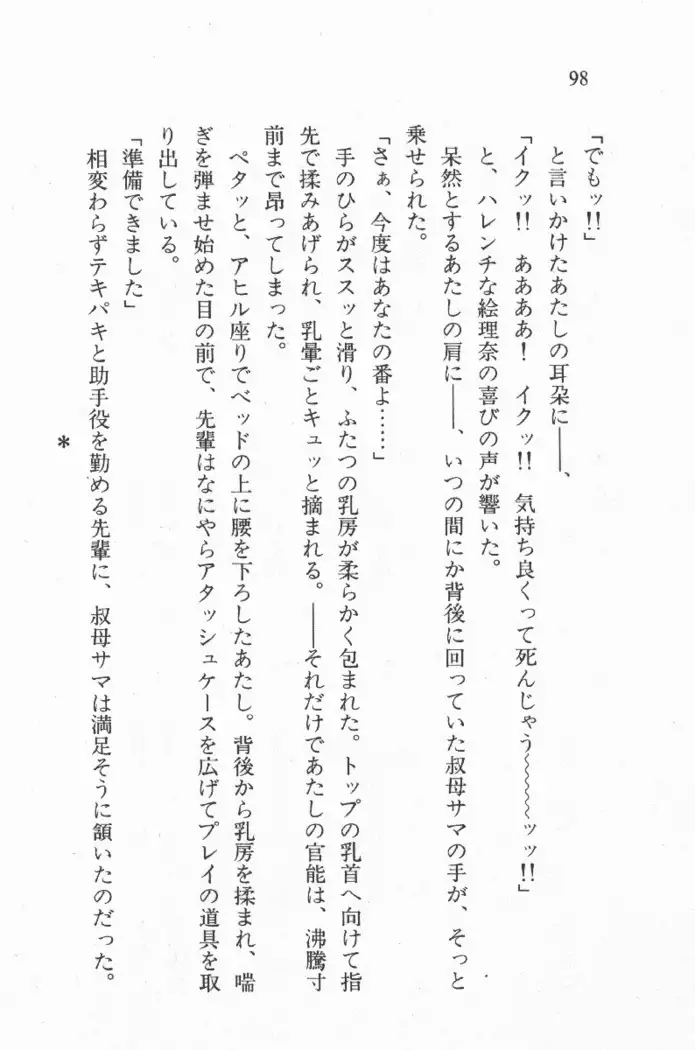 98
「でもッ!!」
と言いかけたあたしの耳朶に――、
「イクッ!! ああああ! イクッ!! 気持ち良くって死んじゃう〜〜〜〜ッッ!!」
と、ハレンチな絵理奈の喜びの声が響いた。
呆然とするあたしの肩に――、いつの間にか背後に回っていた叔母サマの手が、そっと
乗せられた。
「さぁ、今度はあなたの番よ……」
手のひらがススッと滑り、ふたつの乳房が柔らかく包まれた。トップの乳首へ向けて指
先で揉みあげられ、乳暈ごとキュッと摘まれる。――それだけであたしの官能は、沸騰寸
前まで昂ってしまった。
ペタッと、アヒル座りでベッドの上に腰を下ろしたあたし。背後から乳房を揉まれ、喘
ぎを弾ませ始めた目の前で、先輩はなにやらアタッシュケースを広げてプレイの道具を取
り出している。
「準備できました」
相変わらずテキパキと助手役を勤める先輩に、叔母サマは満足そうに頷いたのだった。
*